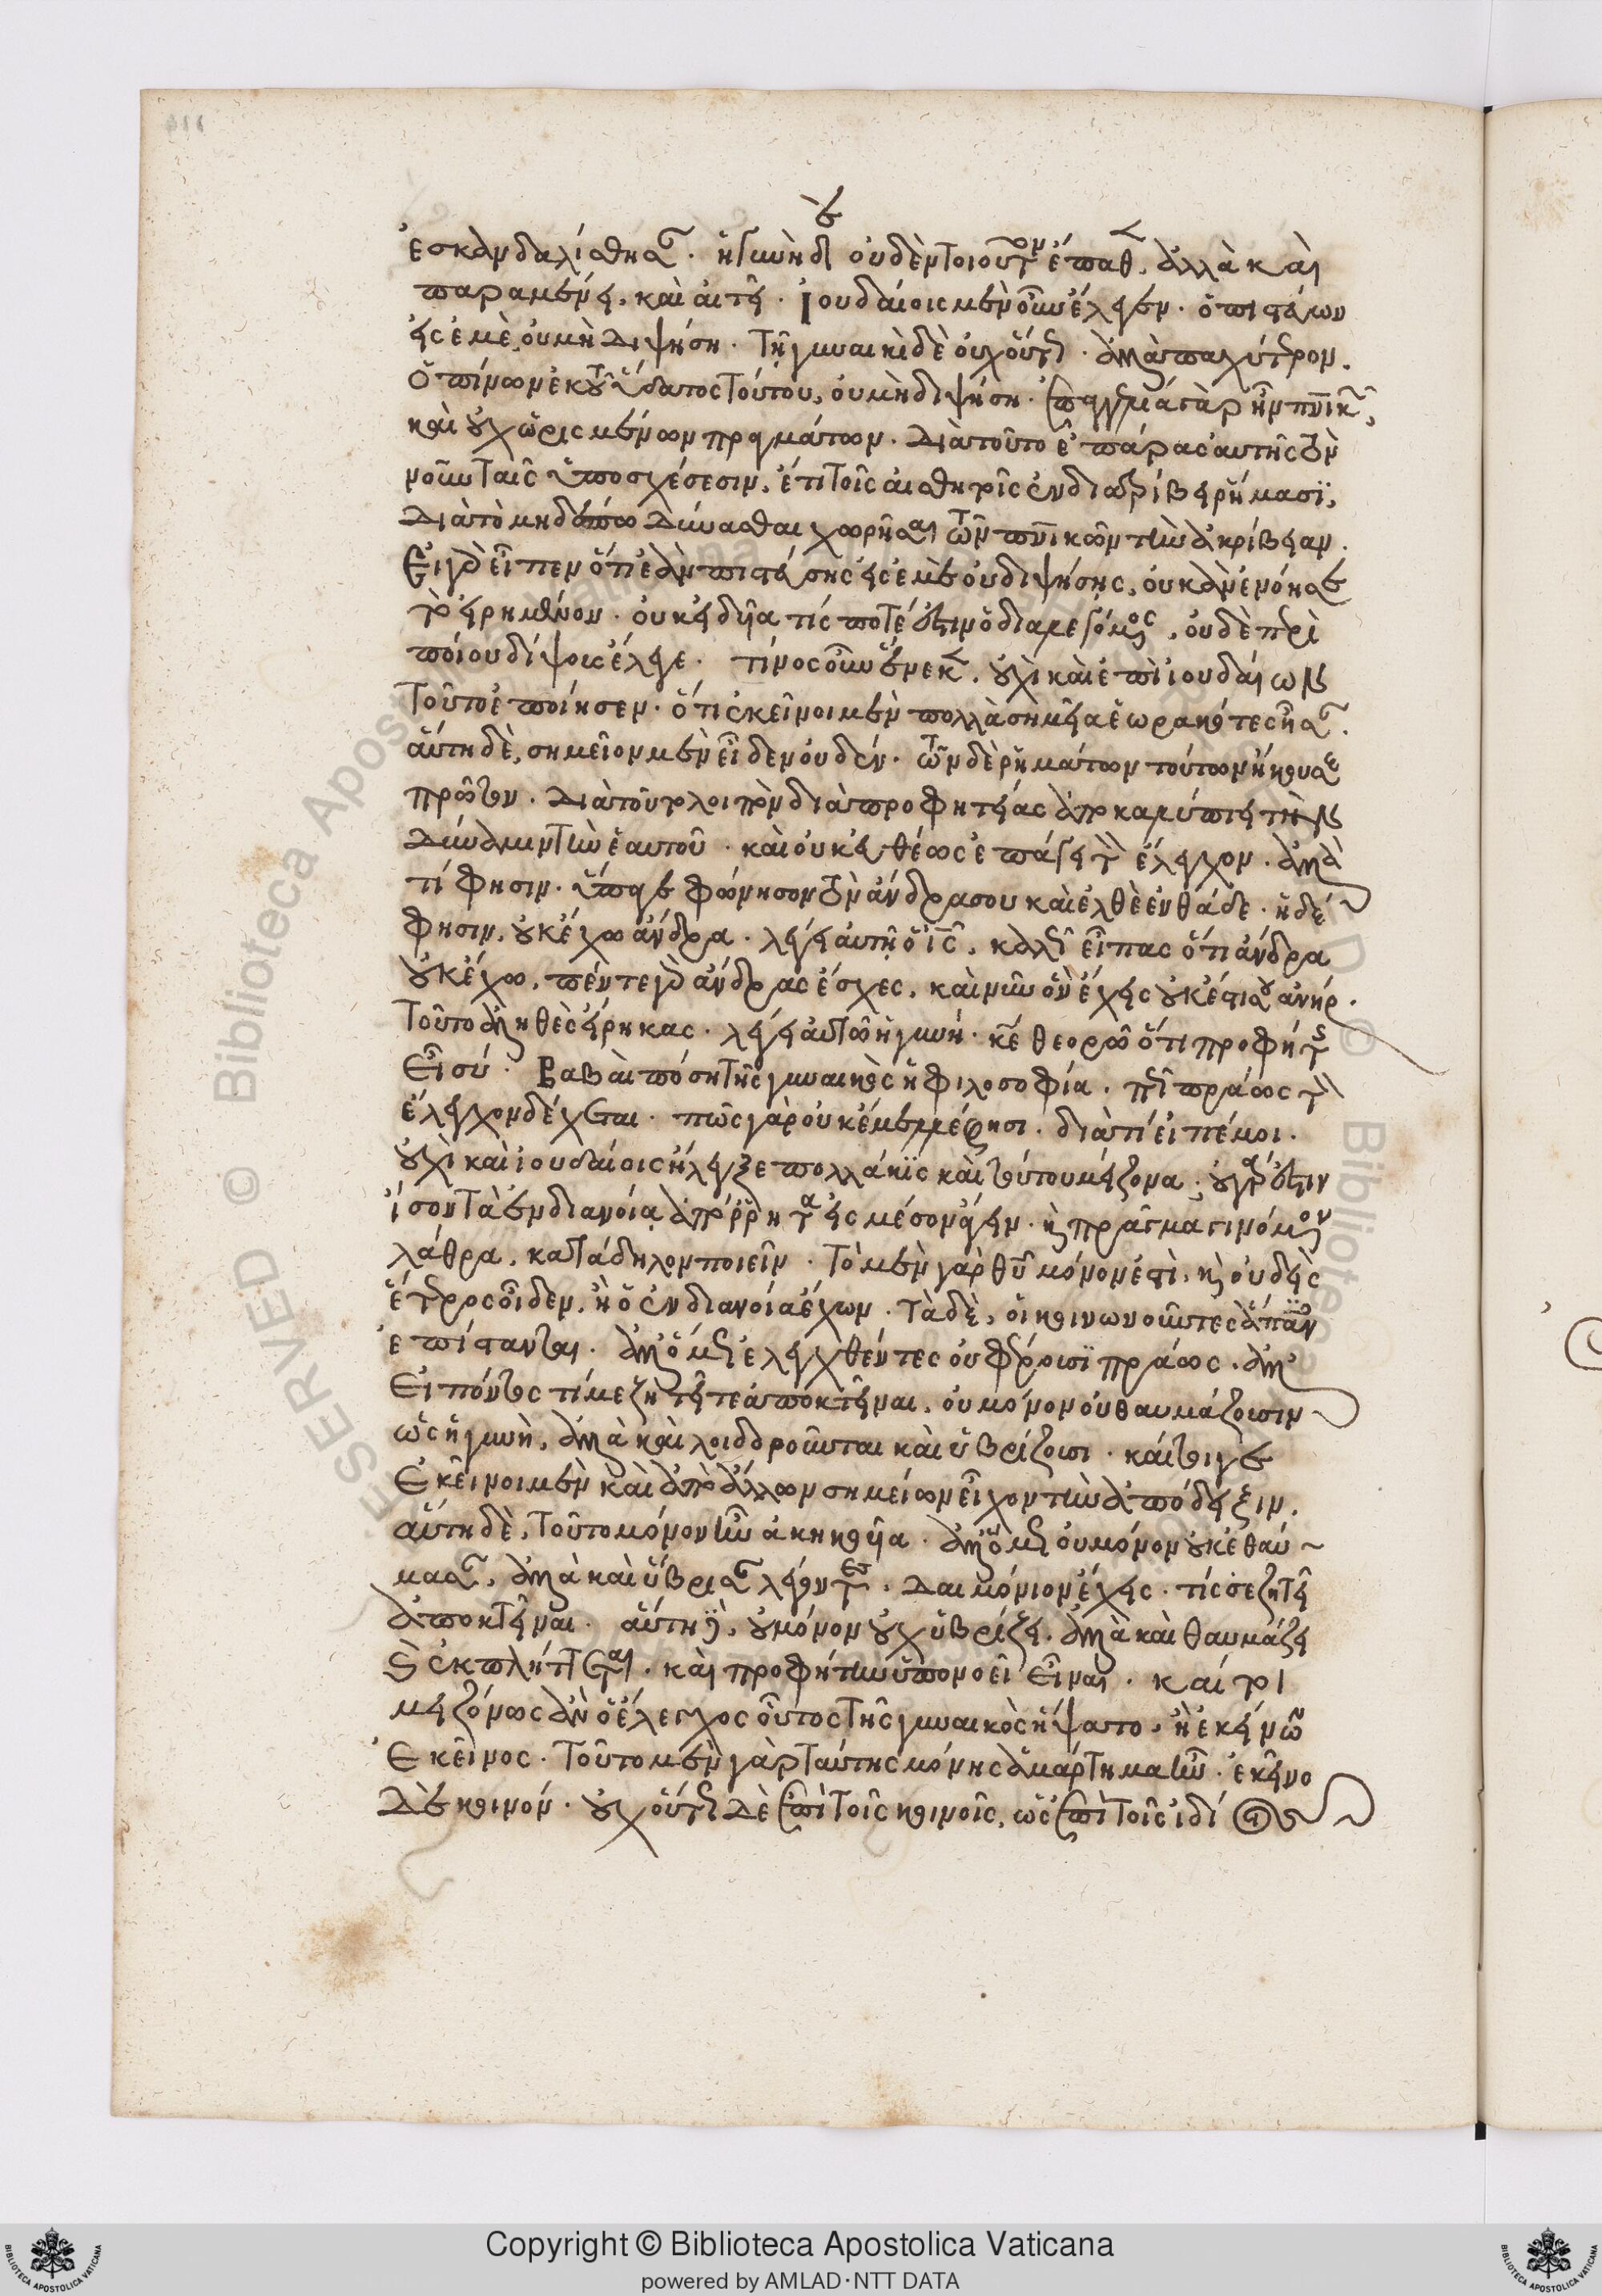 ἐσκανδαλίσθησαν. ἡ γυνὴ δὲ οὐδὲν τοιοῦτον ἔπαθε, ἀλλὰ καὶ
παραμένει, καὶ αἰτεῖ. Ἰουδαίοις μὲν οὖν ἔλεγεν. ὁ πιστεύων
εἰς ἐμὲ, οὐ μὴ διψήση. τῆ γυναικὶ δὲ οὐχ οὕτως. ἀλλὰ παχύτερον.
ὁ πίνων ἐκ τοῦ ὕδατος τούτου, οὐ μὴ διψήση. ἐπαγγελία γὰρ ἦν πνικῶν,
καὶ οὐχ ὡρισμένων πραγμάτων. διὰ τοῦτο ἐπάρας αὐτῆς τὸν
νοῦν ταῖς ὑποσχέσεσιν, ἔτι τοῖς αἰσθητοῖς ἐνδιατρίβει ῥήμασϊ,
διὰ τὸ μηδέπω δύνασθαι χωρῆσαι τῶν πνικῶν τὴν ἀκρίβειαν.
Εἰ γὰρ εἶπεν ὅτι ἐὰν πιστεύσης εἰς ἐμὲ οὐ διψήσης, οὐκ ἂν ἐνόησε
τὸ εἰρημένον. οὐκ εἰδυῖα τίς ποτέ ἐστιν ὁ διαλεγόμενος, οὐδὲ περὶ
ποίου δίψους ἔλεγε. τίνος οὖν ἕνεκεν, οὐχὶ καὶ ἐπὶ ἰουδαίων
τοῦτο ἐποίησεν. ὅτι ἐκεῖνοι μὲν πολλὰ σημεῖα ἑωρακότες ἦσαν.
αὕτη δὲ, σημεῖον μὲν εἶδεν οὐδέν. τῶν δὲ ῥημάτων τούτων ἤκουσε
πρῶτον. διὰ τοῦτο λοιπὸν διὰ προφητείας ἀποκαλύπτει τὴν
δύναμιν τὴν ἑαυτοῦ. καὶ οὐκ εὐθέως ἐπάγει τὸν ἔλεγχον. ἀλλὰ
τί φησιν. ὕπαγε φώνησον τὸν ἄνδρα σου καὶ ἐλθὲ ἐνθάδε. ἡ δέ
φησιν, οὐκ ἔχω ἄνδρα. λέγει αὐτῆ ὁ ἰς, καλῶς εἶπας ὅτι ἄνδρα
οὐκ ἔχω, πέντε γὰρ ἄνδρας ἔσχες, καὶ νῦν ὃν ἔχεις οὐκ ἔστι σου ἀνήρ.
τοῦτο ἀληθὲς εἴρηκας. λέγει αὐτῶ ἡ γυνή. κε θεορῶ ὅτι προφήτης
εἶ σύ. βαβαὶ πόση τῆς γυναικὸς ἡ φιλοσοφία. πῶς πράως τὸν
ἔλεγχον δέχεται. πῶς γὰρ οὐκ ἔμελλέ φησι. διὰ τί εἰπέ μοι.
οὐχὶ καὶ ἰουδαίοις ἤλεγξε πολλάκϊς καὶ τούτου μείζονα. οὐ γάρ ἐστιν
ἴσον τὰ ἐν διανοία ἀπόρρητα εἰς μέσον ἄγειν. καὶ πρᾶγμα γινόμενον
λάθρα, κατάδηλον ποιεῖν. τὸ μὲν γὰρ θυ μόνον ἐστὶ, καὶ οὐδεὶς
ἕτερος οἶδεν, ἢ ὁ ἐν διανοία ἔχων. τὰ δὲ, οἱ κοινωνοῦντες ἅπαν
ἐπίστανται. ἀλλ' ὅμως ἐλεγχθέντες οὐ φέρουσϊ πράως. ἀλλ'
εἰπόντος τί με ζητεῖτε ἀποκτεῖναι, οὐ μόνον οὐ θαυμάζουσιν
ὡς ἡ γυνὴ, ἀλλὰ καὶ λοιδοροῦνται καὶ ὑβρίζουσι. καίτοιγε
ἐκεῖνοι μὲν καὶ ἀπὸ ἄλλων σημείων εἶχον τὴν ἀπόδειξιν.
αὕτη δὲ, τοῦτο μόνον ἦν ἀκηκουῖα. ἀλλ' ὅμως οὐ μόνον οὐκ ἐθαύ~
μασαν, ἀλλὰ καὶ ὕβρισαν λέγοντες. δαιμόνιον ἔχεις. τίς σε ζητεῖ
ἀποκτεῖναι. αὕτη δὲ, οὐ μόνον οὐχ ὑβρίζει, ἀλλὰ καὶ θαυμάζει
καὶ ἐκπλήττεται. καὶ προφήτην ὑπονοεῖ εἶναι. καίτοι
μειζόνως ἂν ὁ ἔλεγχος οὗτος τῆς γυναικὸς ἥψατο, ἢ ἐκείνων
ἐκεῖνος. τοῦτο μὲν γὰρ ταύτης μόνης ἁμάρτημα ἦν. ἐκεῖνο
δὲ κοινόν. οὐχ οὕτως δὲ ἐπὶ τοῖς κοινοῖς, ὡς ἐπὶ τοῖς ἰδί